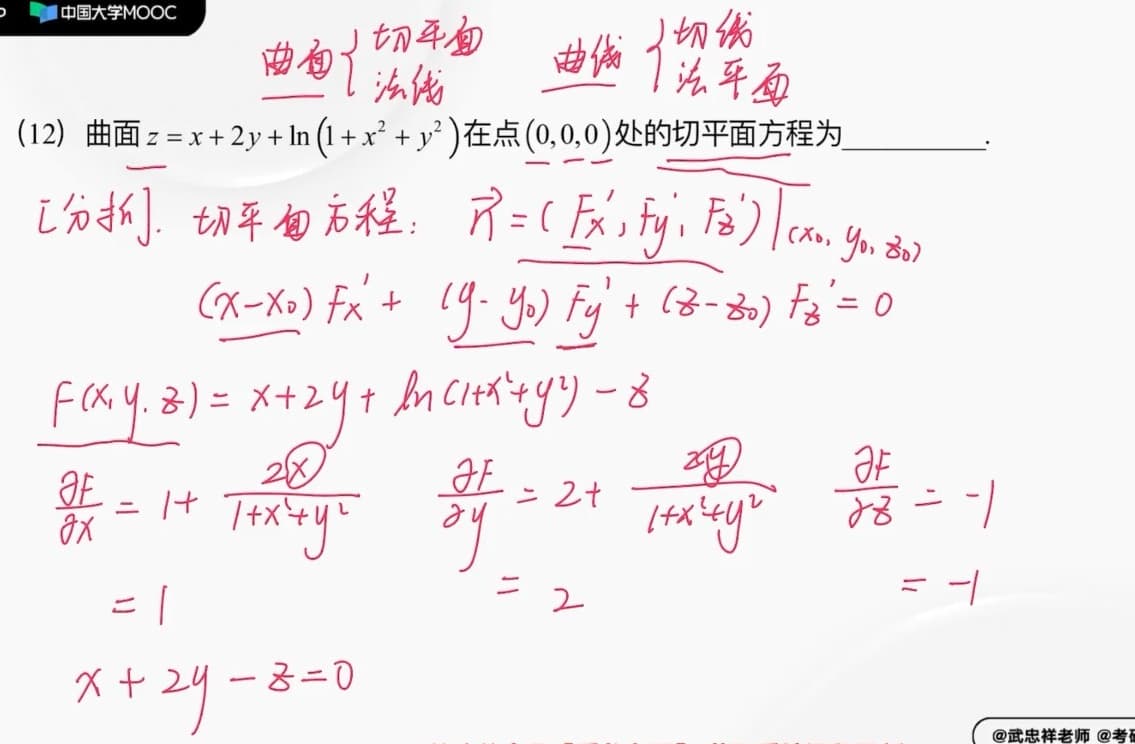 中国大学MOOC
曲面 { 切平面 法线 曲线 { 切线 法平面
(12) 曲面 z = x + 2y + ln(1 + x² + y²) 在点 (0,0,0) 处的切平面方程为__________.
[分析]. 切平面方程: n⃗ = (Fx', Fy', Fz')|(x₀, y₀, z₀)
(x-x₀) Fx' + (y-y₀) Fy' + (z-z₀) Fz' = 0
F(x, y. z) = x+2y + ln(1+x²+y²) - z
∂F/∂x = 1+ 2x/(1+x²+y²) ∂F/∂y = 2+ 2y/(1+x²+y²) ∂F/∂z = -1
= 1 = 2 = -1
x + 2y - z = 0
@武忠祥老师 @考研